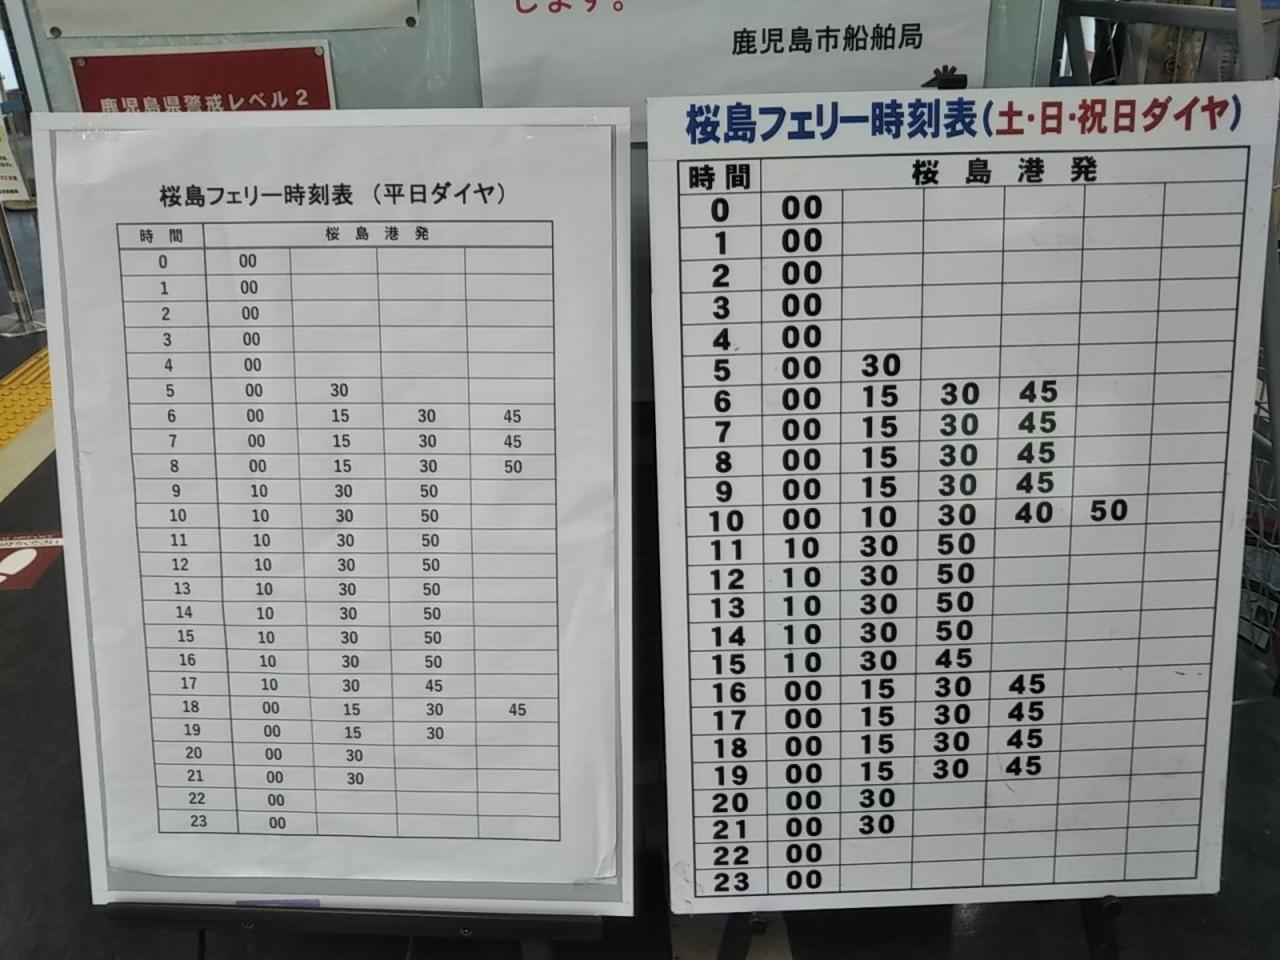 します。
鹿児島市船舶局
鹿児島県警戒レベル2
桜島フェリー時刻表 (平日ダイヤ)
時間 桜島港発
0 00
1 00
2 00
3 00
4 00
5 00 30
6 00 15 30 45
7 00 15 30 45
8 00 15 30 50
9 10 30 50
10 10 30 50
11 10 30 50
12 10 30 50
13 10 30 50
14 10 30 50
15 10 30 50
16 10 30 50
17 10 30 45
18 00 15 30 45
19 00 15 30
20 00 30
21 00 30
22 00
23 00
桜島フェリー時刻表(土・日・祝日ダイヤ)
時間 桜島港発
0 00
1 00
2 00
3 00
4 00
5 00 30
6 00 15 30 45
7 00 15 30 45
8 00 15 30 45
9 00 15 30 45
10 00 10 30 40 50
11 10 30 50
12 10 30 50
13 10 30 50
14 10 30 50
15 10 30 45
16 00 15 30 45
17 00 15 30 45
18 00 15 30 45
19 00 15 30 45
20 00 30
21 00 30
22 00
23 00